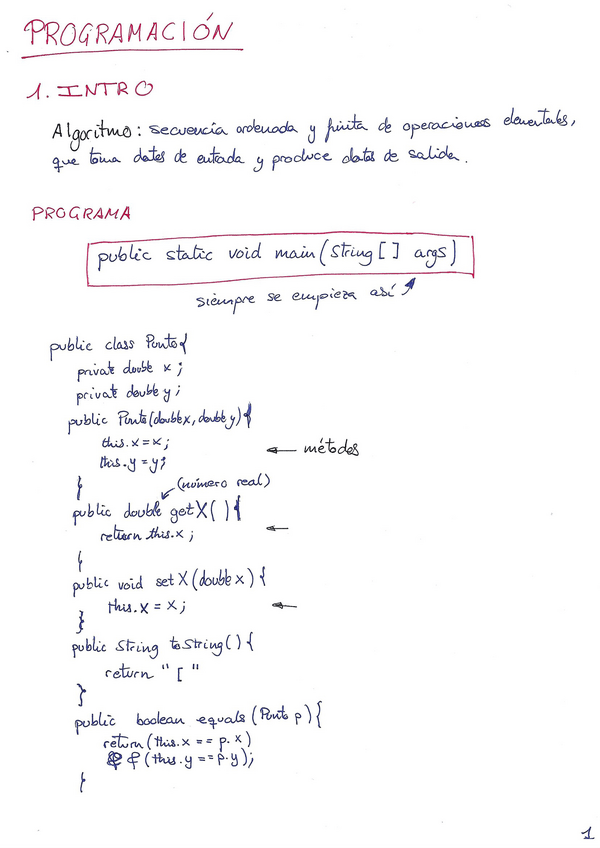 PROGRAMACIÓN
1. INTRO
Algoritmo: secuencia ordenada y finita de operaciones elementales,
que toma datos de entrada y produce datos de salida.
PROGRAMA
public static void main(String[] args)
siempre se empieza así
public class Punto{
private double x;
private double y;
public Punto(double x, double y){
this.x=x;
this.y=y;
← métodos
}
(número real)
public double getX(){
return this.x;
←
}
public void setX(double x){
this.x = x;
←
}
public String toString(){
return "["
}
public boolean equals(Punto p){
return(this.x == p.x)
&& (this.y == p.y);
}
1